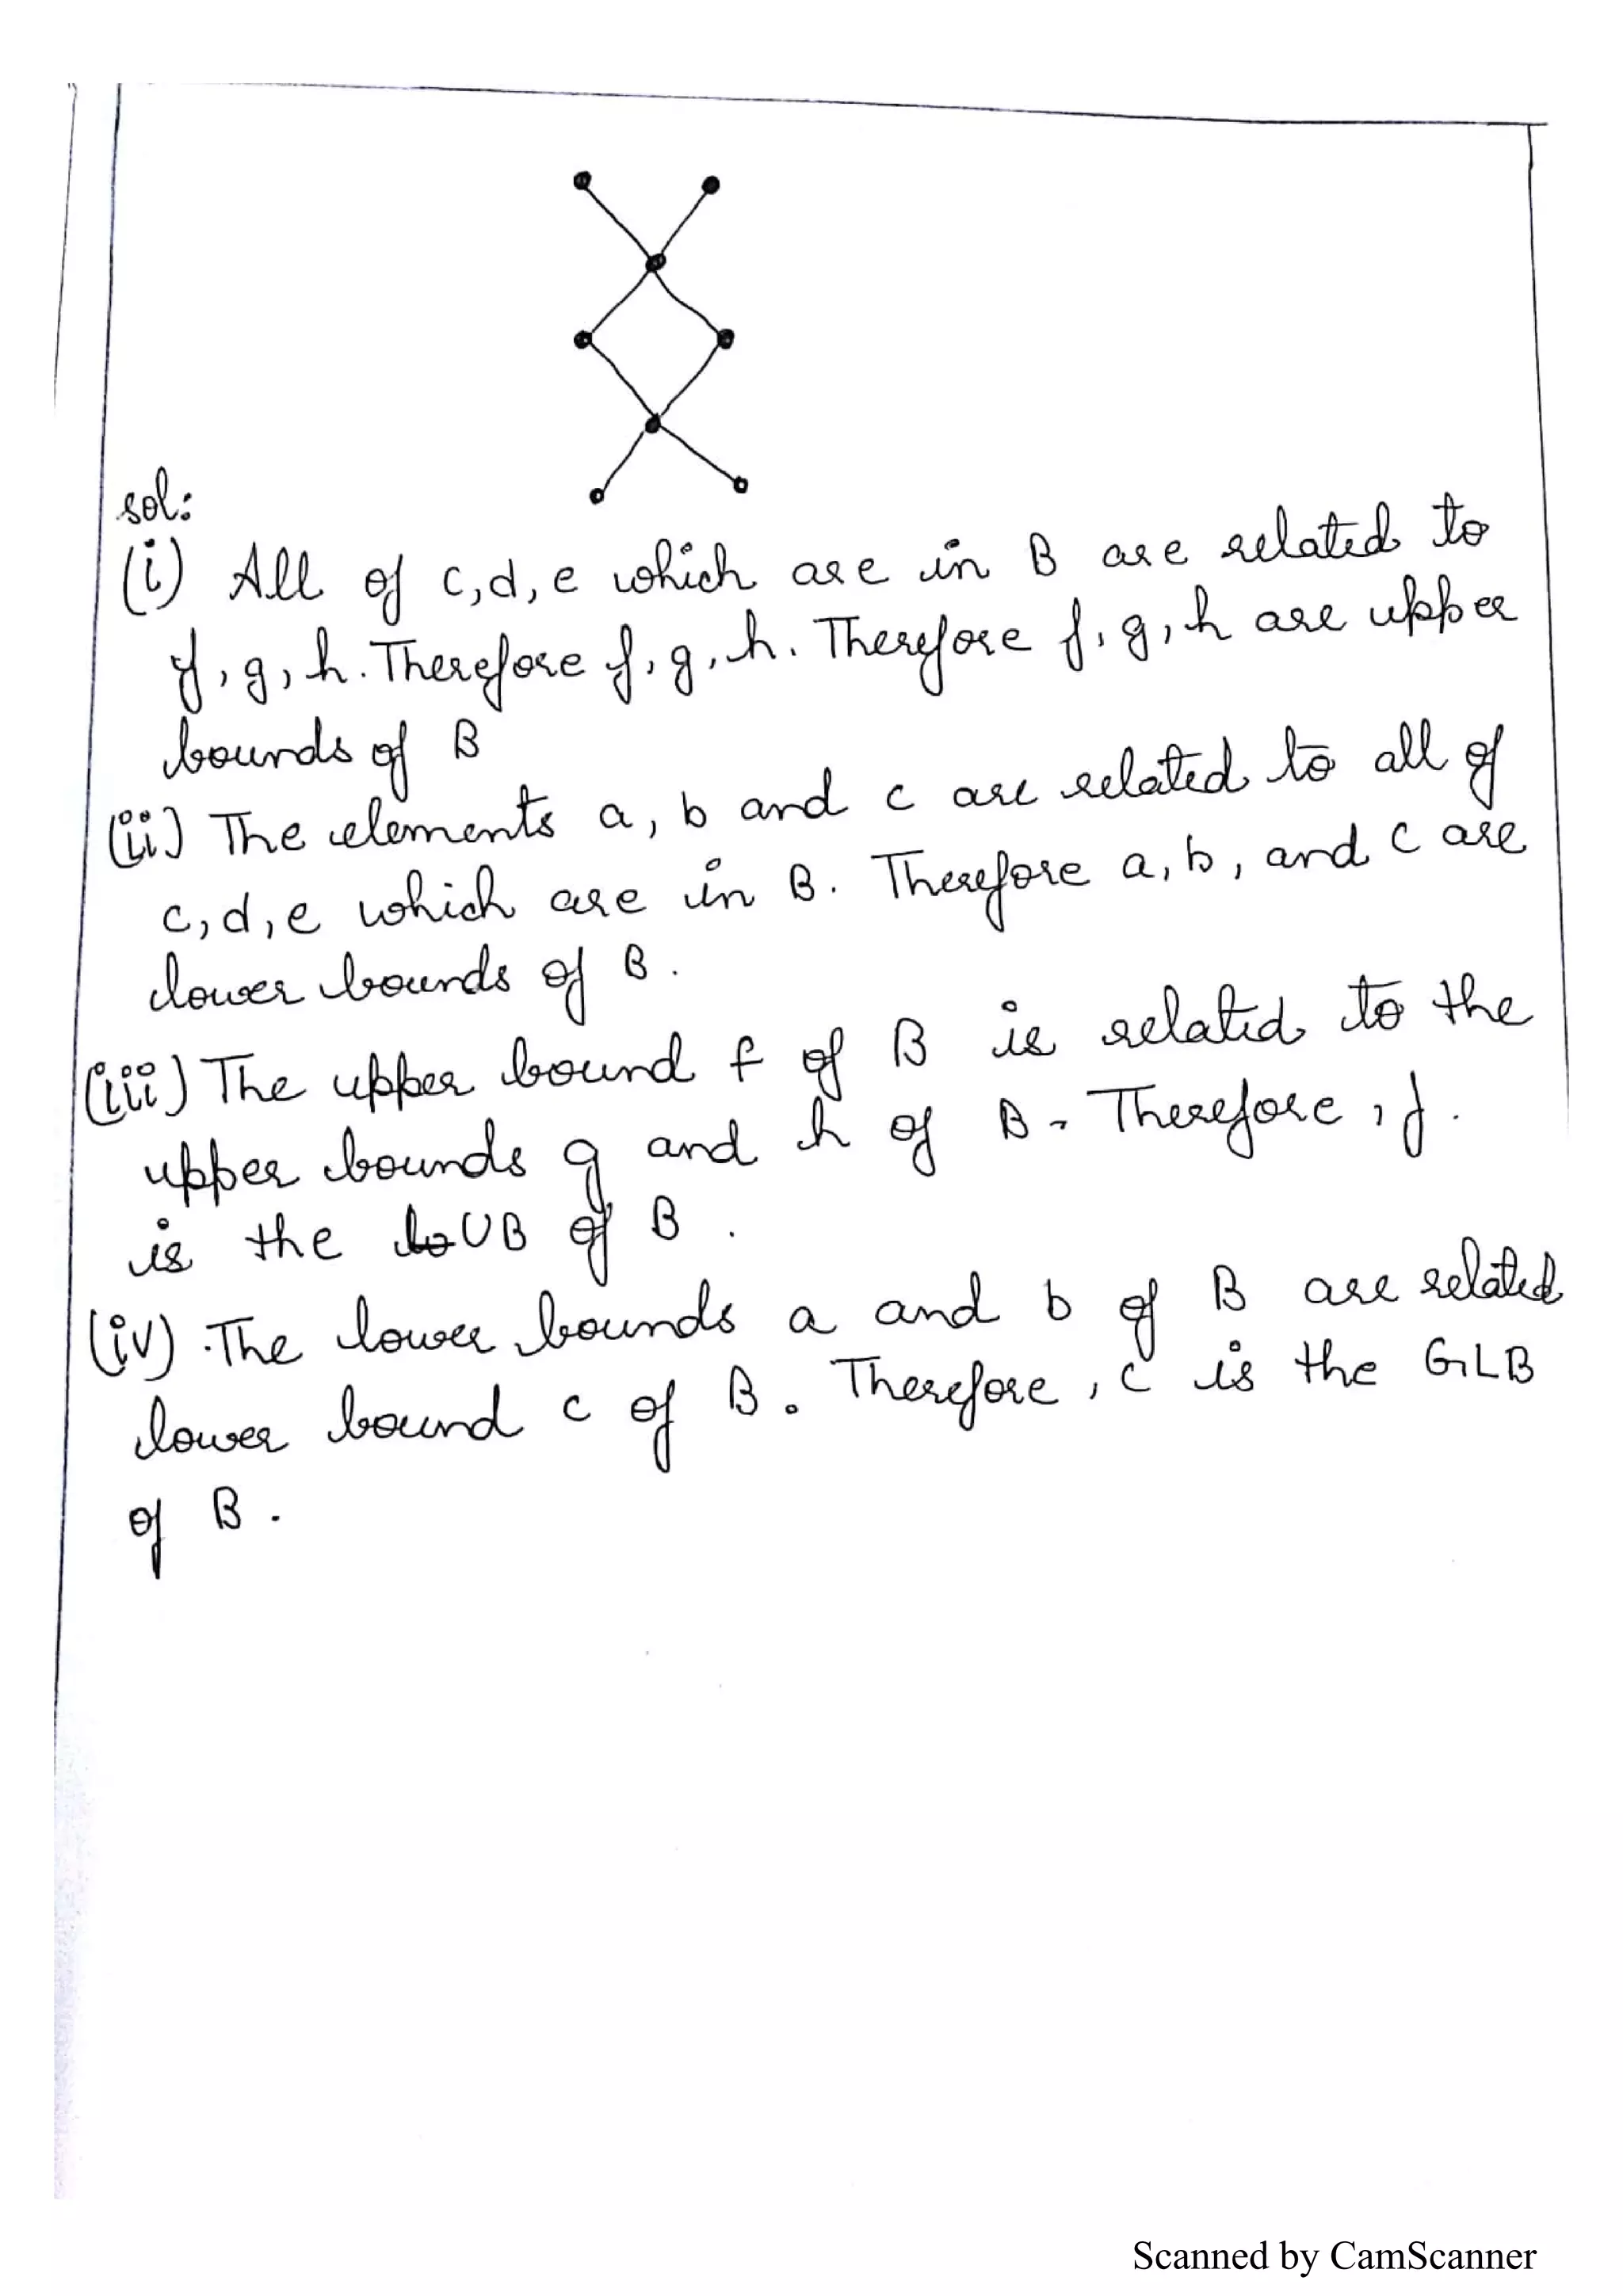 sol:
(i) All of c,d,e which are in B are related to
f,g,h. Therefore f,g,h. Therefore f,g,h are upper
bounds of B
(ii) The elements a, b and c are related to all of
c,d,e which are in B. Therefore a, b, and c are
lower bounds of B.
(iii) The upper bound f of B is related to the
upper bounds g and h of B. Therefore, f.
is the UB of B.
(iv). The lower bounds a and b of B are related
lower bound c of B. Therefore, c is the GLB
of B.
Scanned by CamScanner